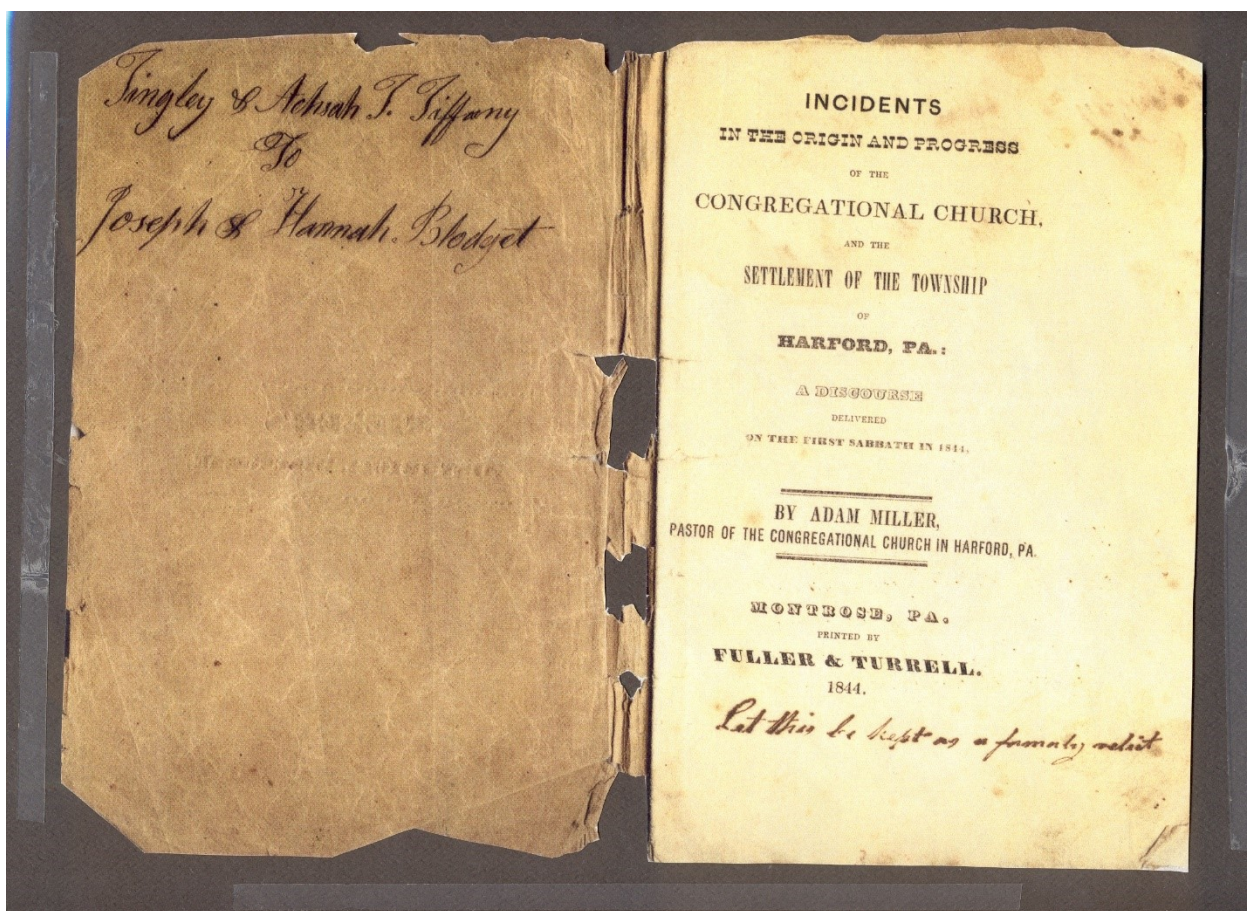 Tingley & Achsah T. Tiffany
To
Joseph & Hannah Blodget
INCIDENTS
IN THE ORIGIN AND PROGRESS
OF THE
CONGREGATIONAL CHURCH,
AND THE
SETTLEMENT OF THE TOWNSHIP
OF
HARFORD, PA.:
A DISCOURSE
DELIVERED
ON THE FIRST SABBATH IN 1844,
BY ADAM MILLER,
PASTOR OF THE CONGREGATIONAL CHURCH IN HARFORD, PA.
MONTROSE, PA.
PRINTED BY
FULLER & TURRELL.
1844.
Let this be kept as a